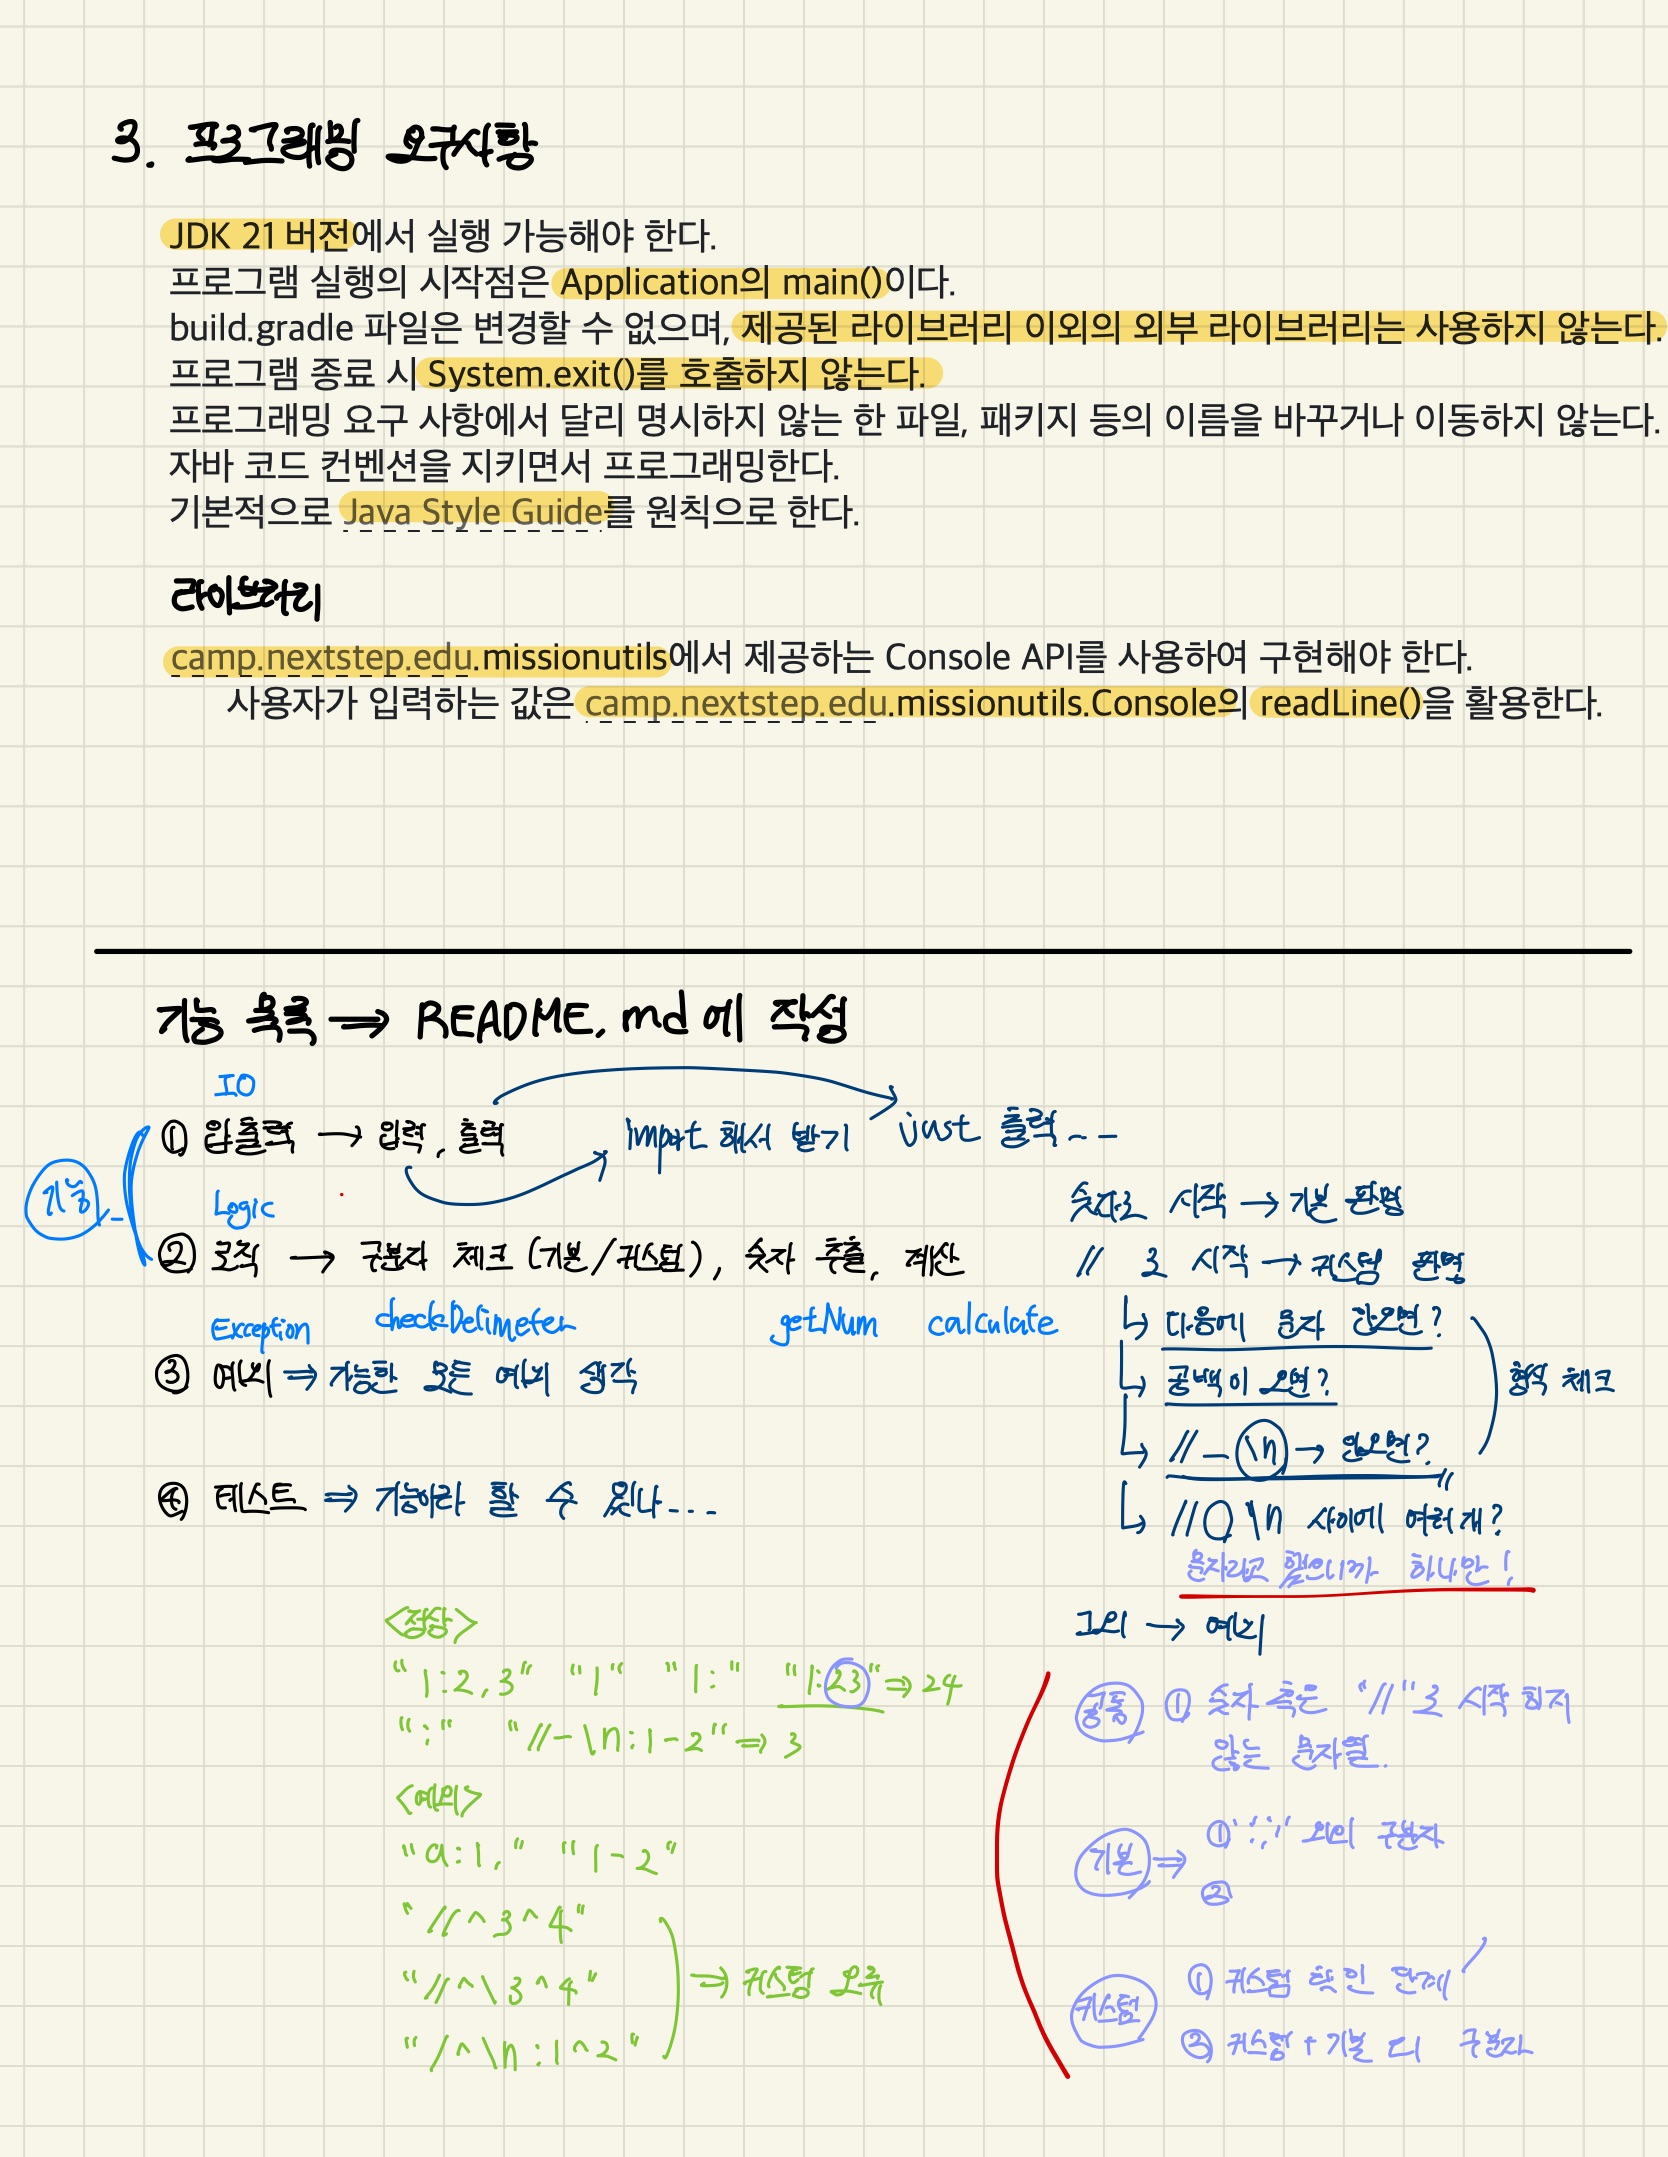 3. 프로그래밍 요구사항
JDK 21 버전에서 실행 가능해야 한다.
프로그램 실행의 시작점은 Application의 main()이다.
build.gradle 파일은 변경할 수 없으며, 제공된 라이브러리 이외의 외부 라이브러리는 사용하지 않는다.
프로그램 종료 시 System.exit()를 호출하지 않는다.
프로그래밍 요구 사항에서 달리 명시하지 않는 한 파일, 패키지 등의 이름을 바꾸거나 이동하지 않는다.
자바 코드 컨벤션을 지키면서 프로그래밍한다.
기본적으로 Java Style Guide를 원칙으로 한다.
라이브러리
camp.nextstep.edu.missionutils에서 제공하는 Console API를 사용하여 구현해야 한다.
사용자가 입력하는 값은 camp.nextstep.edu.missionutils.Console의 readLine()을 활용한다.
기능 목록 ⇒ README.md에 작성
IO
① 입출력 → 입력, 출력
import 해서 받기
just 출력...
기능
Logic
② 로직 → 구분자 체크 (기본/커스텀), 숫자 추출, 계산
checkDelimeter
getNum
calculate
Exception
③ 예외 ⇒ 가능한 모든 예외 생각
④ 테스트 ⇒ 기능이라 할 수 있나...
숫자로 시작 → 기본 판명
// 로 시작 → 커스텀 판명
↳ 다음에 문자 안오면?
↳ 공백이 오면?
↳ //_\n → 안오면?
형식 체크
↳ //○\n 사이에 여러개?
문자라고 했으니까 하나만!
그외 → 예외
<정상>
"1:2,3" "1" "1:" "1:23" ⇒ 24
":" "//-\n:1-2" ⇒ 3
<예외>
"a:1," "1-2"
"//^3^4"
"//^\3^4"
"/^\n:1^2"
⇒ 커스텀 오류
공통 ① 숫자 혹은 "//"로 시작하지
않는 문자열.
기본 ⇒
① ':,' 외의 구분자
②
커스텀
① 커스텀 확인 단계
② 커스텀 + 기본 구분자